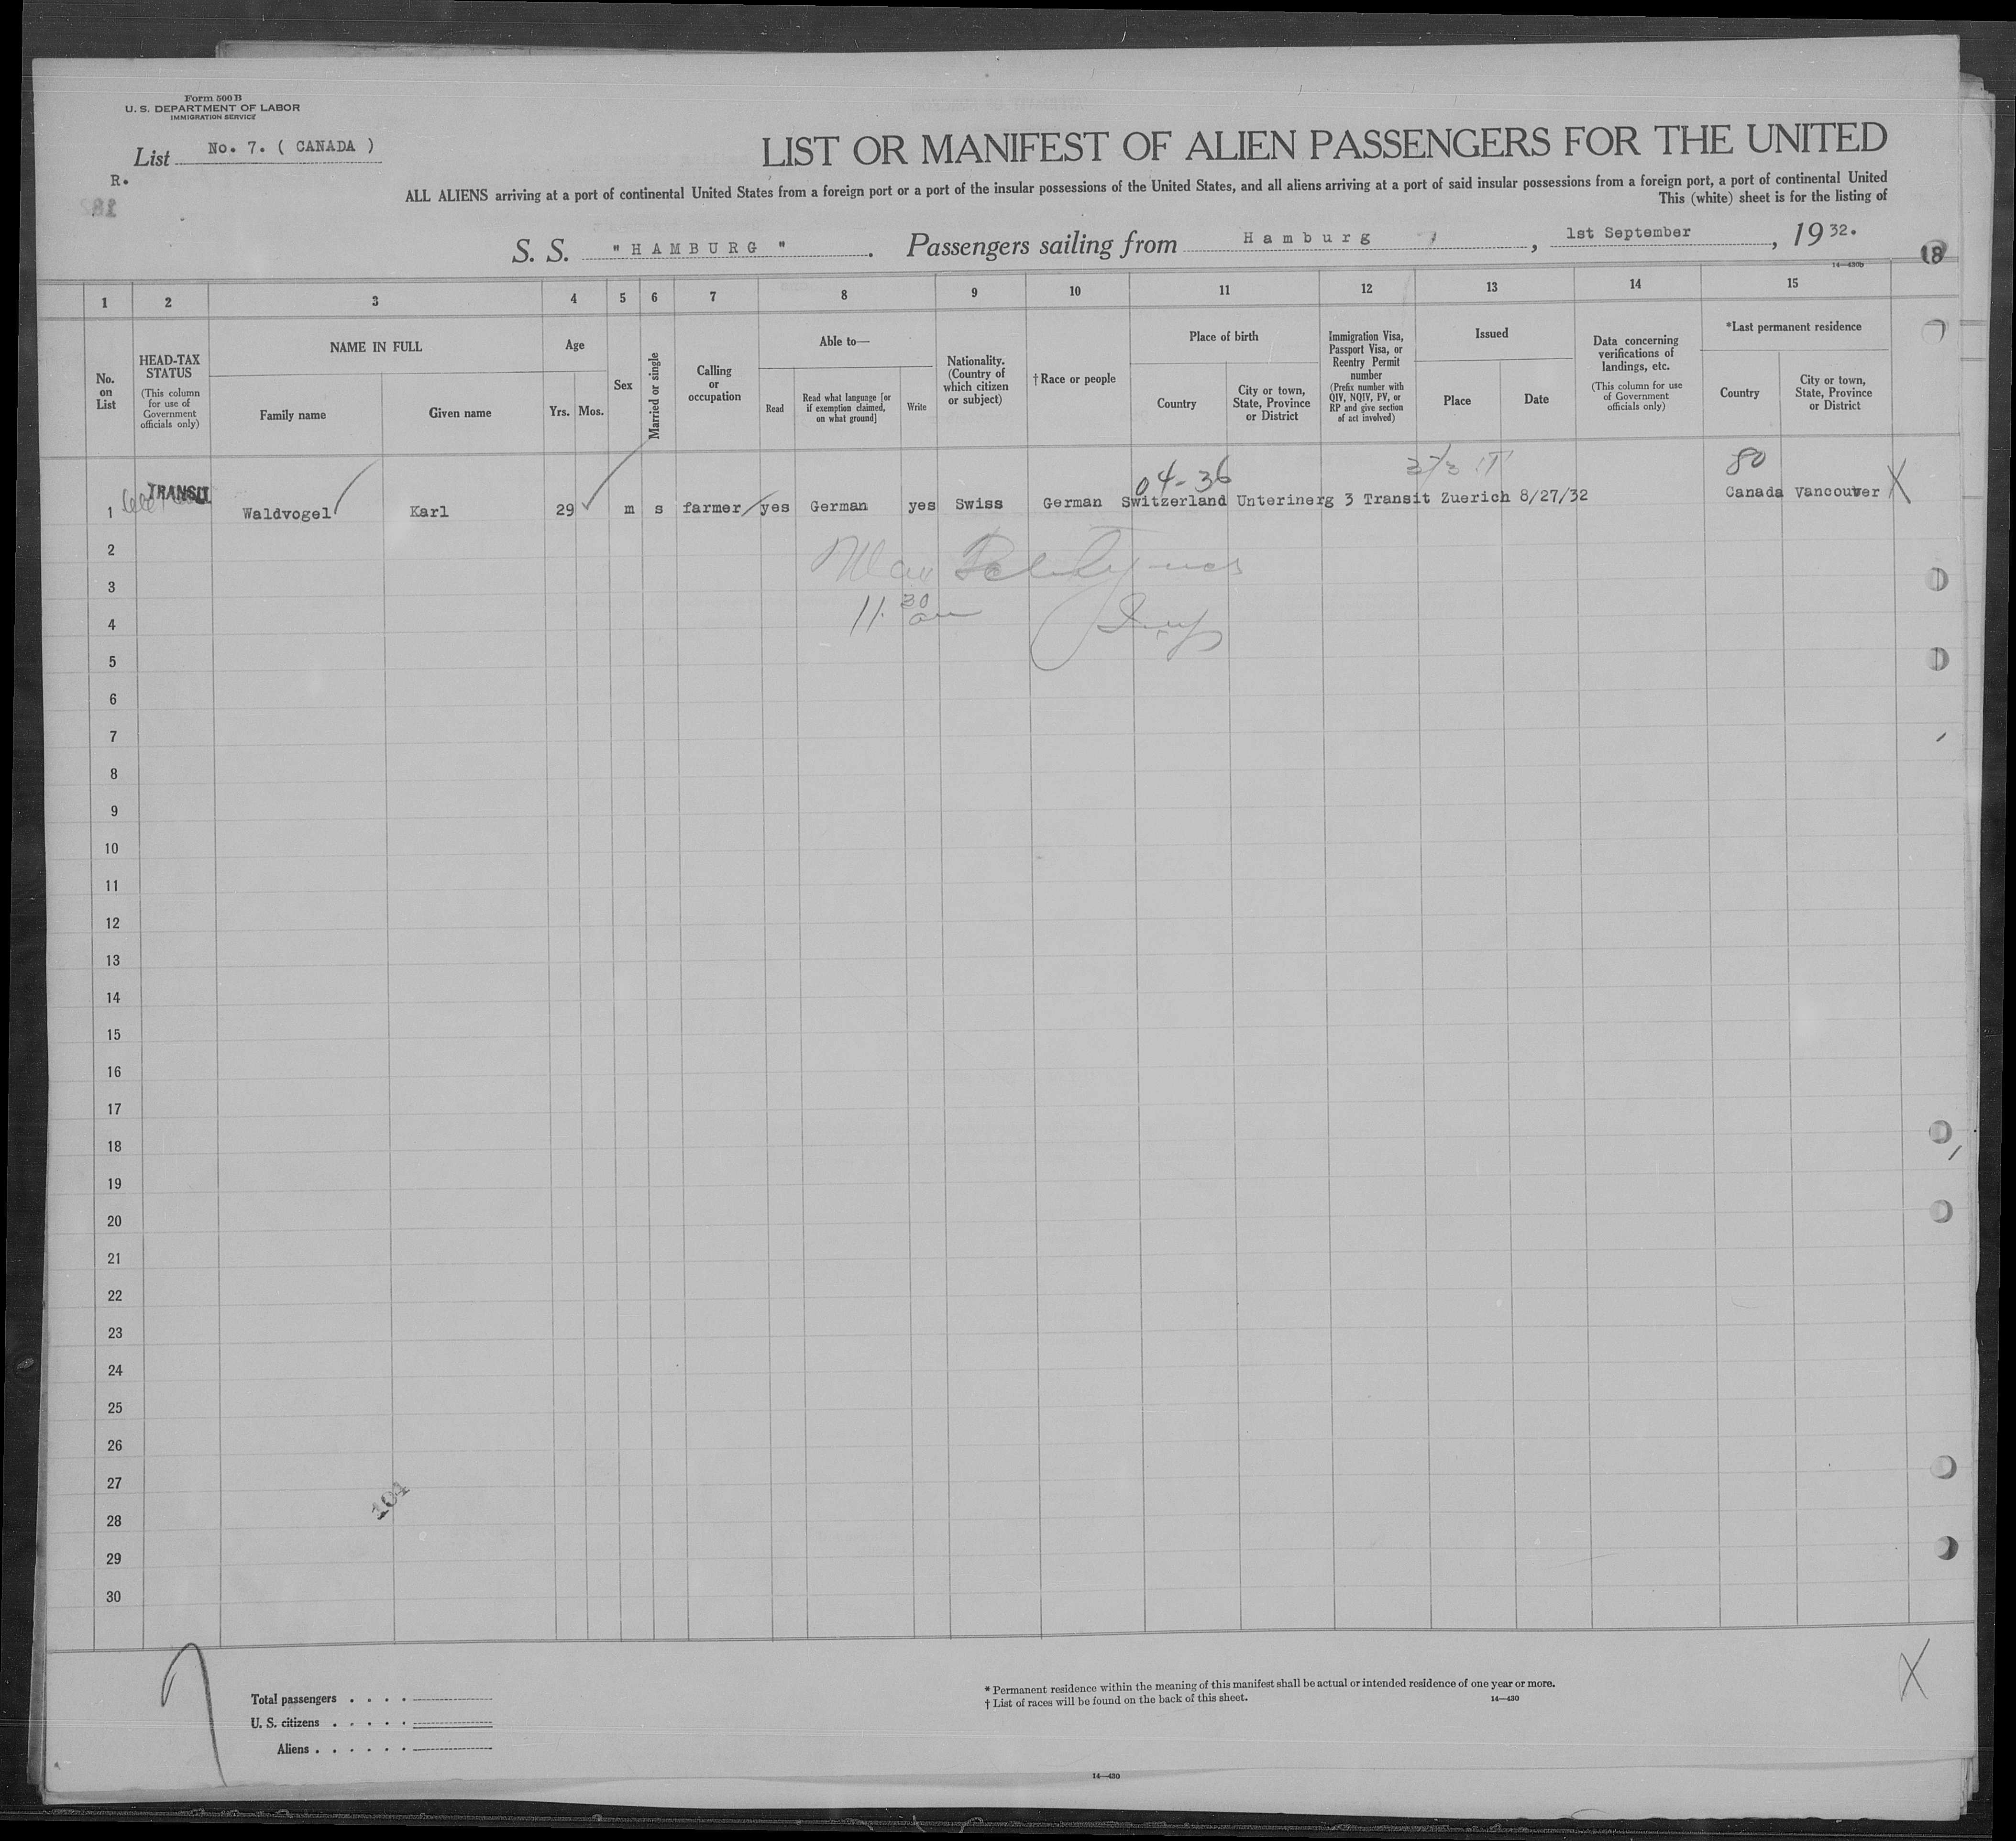 Form 500 B
U. S. DEPARTMENT OF LABOR
IMMIGRATION SERVICE
List No. 7. ( CANADA )
R.
LIST OR MANIFEST OF ALIEN PASSENGERS FOR THE UNITED
ALL ALIENS arriving at a port of continental United States from a foreign port or a port of the insular possessions of the United States, and all aliens arriving at a port of said insular possessions from a foreign port, a port of continental United
This (white) sheet is for the listing of
S. S. " HAMBURG " . Passengers sailing from Hamburg , 1st September , 19 32.
14—430b
18
1 2 3 4 5 6 7 8 9 10 11 12 13 14 15
No. on List
HEAD-TAX STATUS
(This column for use of Government officials only)
NAME IN FULL
Family name
Given name
Age
Yrs.
Mos.
Sex
Married or single
Calling or occupation
Able to—
Read
Read what language [or if exemption claimed, on what ground]
Write
Nationality. (Country of which citizen or subject)
† Race or people
Place of birth
Country
City or town, State, Province or District
Immigration Visa, Passport Visa, or Reentry Permit number
(Prefix number with QIV, NQIV, PV, or RP and give section of act involved)
Issued
Place
Date
Data concerning verifications of landings, etc.
(This column for use of Government officials only)
*Last permanent residence
Country
City or town, State, Province or District
04-36
80
1 TRANSIT Waldvogel Karl 29 m s farmer yes German yes Swiss German Switzerland Unterinerg 3 Transit Zuerich 8/27/32 Canada Vancouver X
2
3
11 30 am
4
5
6
7
8
9
10
11
12
13
14
15
16
17
18
19
20
21
22
23
24
25
26
27
104
28
29
30
Total passengers . . . .
U. S. citizens . . . . .
Aliens . . . . . .
* Permanent residence within the meaning of this manifest shall be actual or intended residence of one year or more.
† List of races will be found on the back of this sheet.
14—430
X
14—430